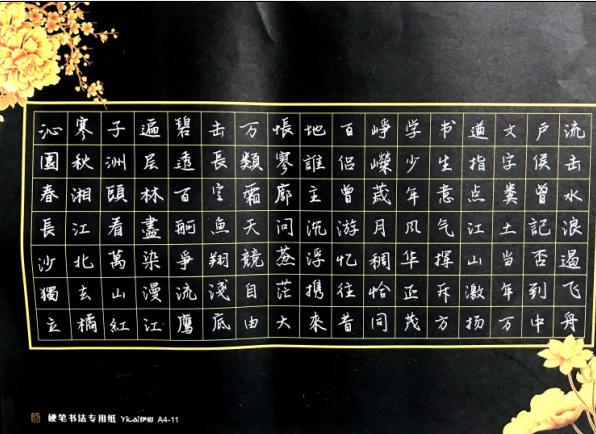 沁園春長沙獨立
寒秋湘江北去橘
子洲頭看萬山紅
遍层林盡染漫江
碧透百舸爭流鷹
击長空魚翔淺底
万類霜天競自由
悵寥廓問蒼茫大
地誰主沉浮携來
百侣曾游忆往昔
峥嶸歲月稠恰同
学少年风华正茂
书生意气揮斥方
遒指点江山激扬
文字粪土当年万
户侯曾記否到中
流击水浪遏飞舟
硬笔书法专用纸 Yicai伊彩 A4-11